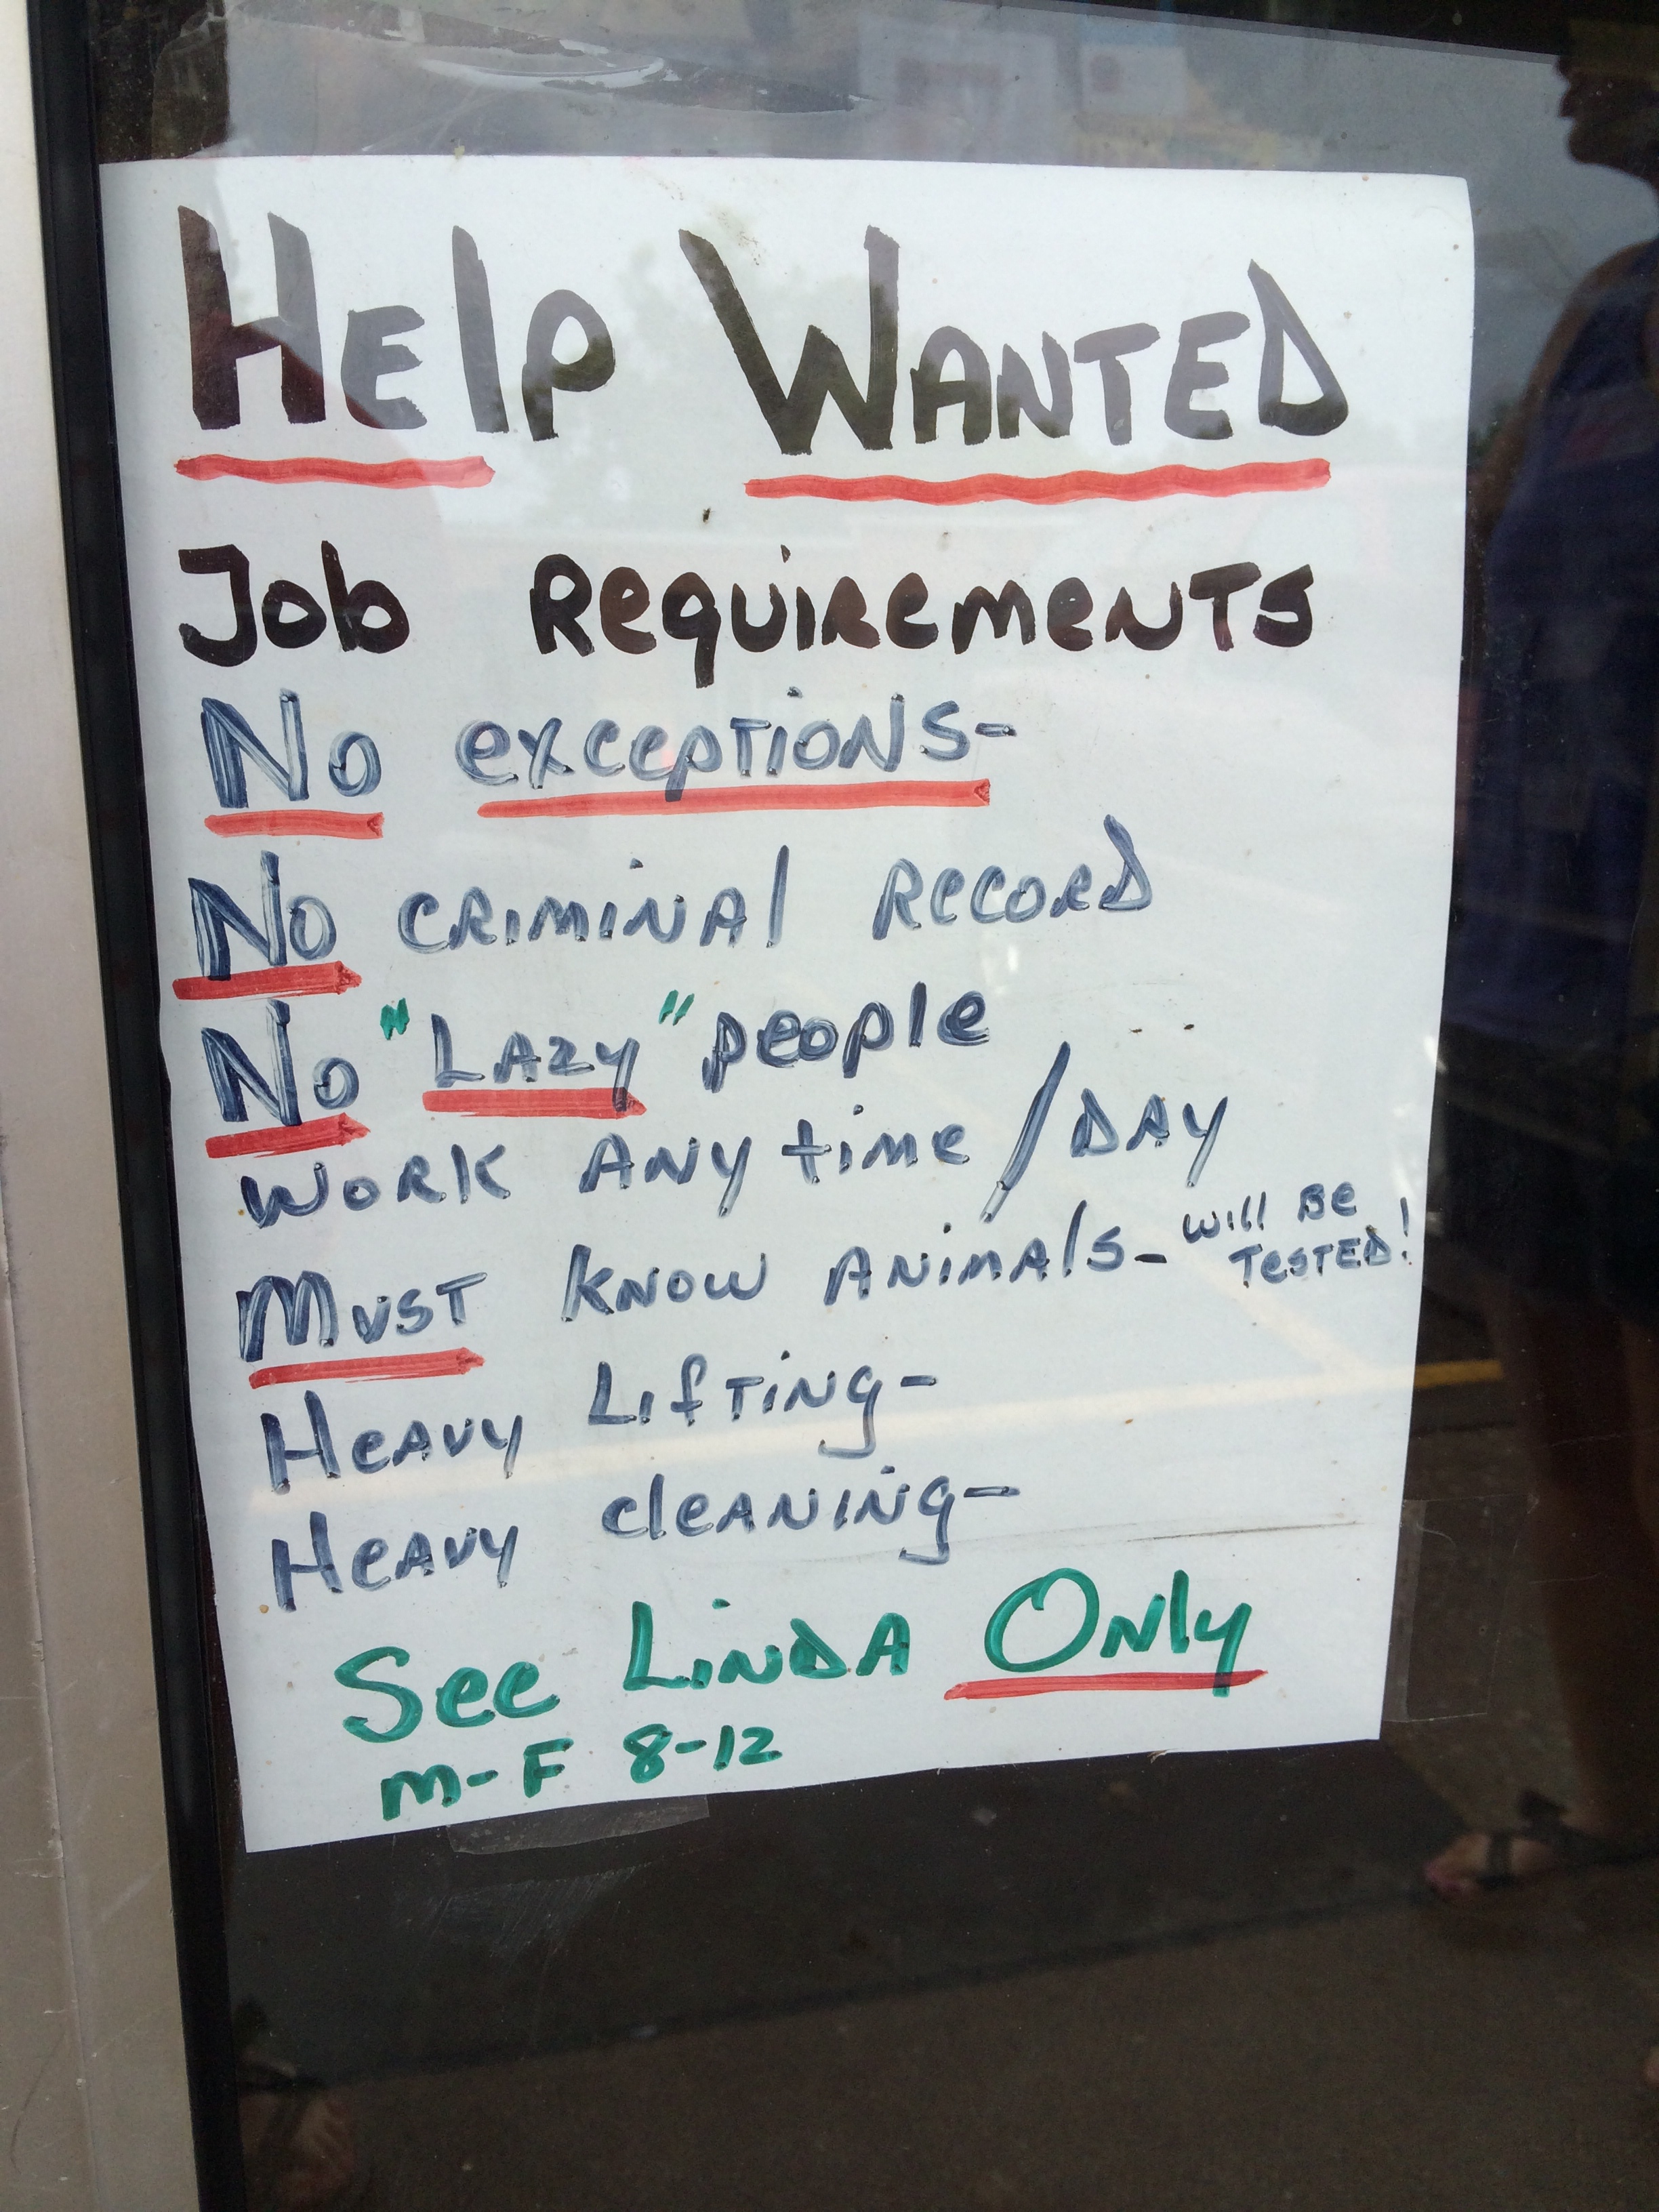 Help Wanted
Job Requirements
No exceptions-
No criminal Record
No "Lazy" people
Work Any time/Day
Must know Animals- will Be
Tested!
Heavy Lifting-
Heavy cleaning-
See Linda Only
M-F 8-12